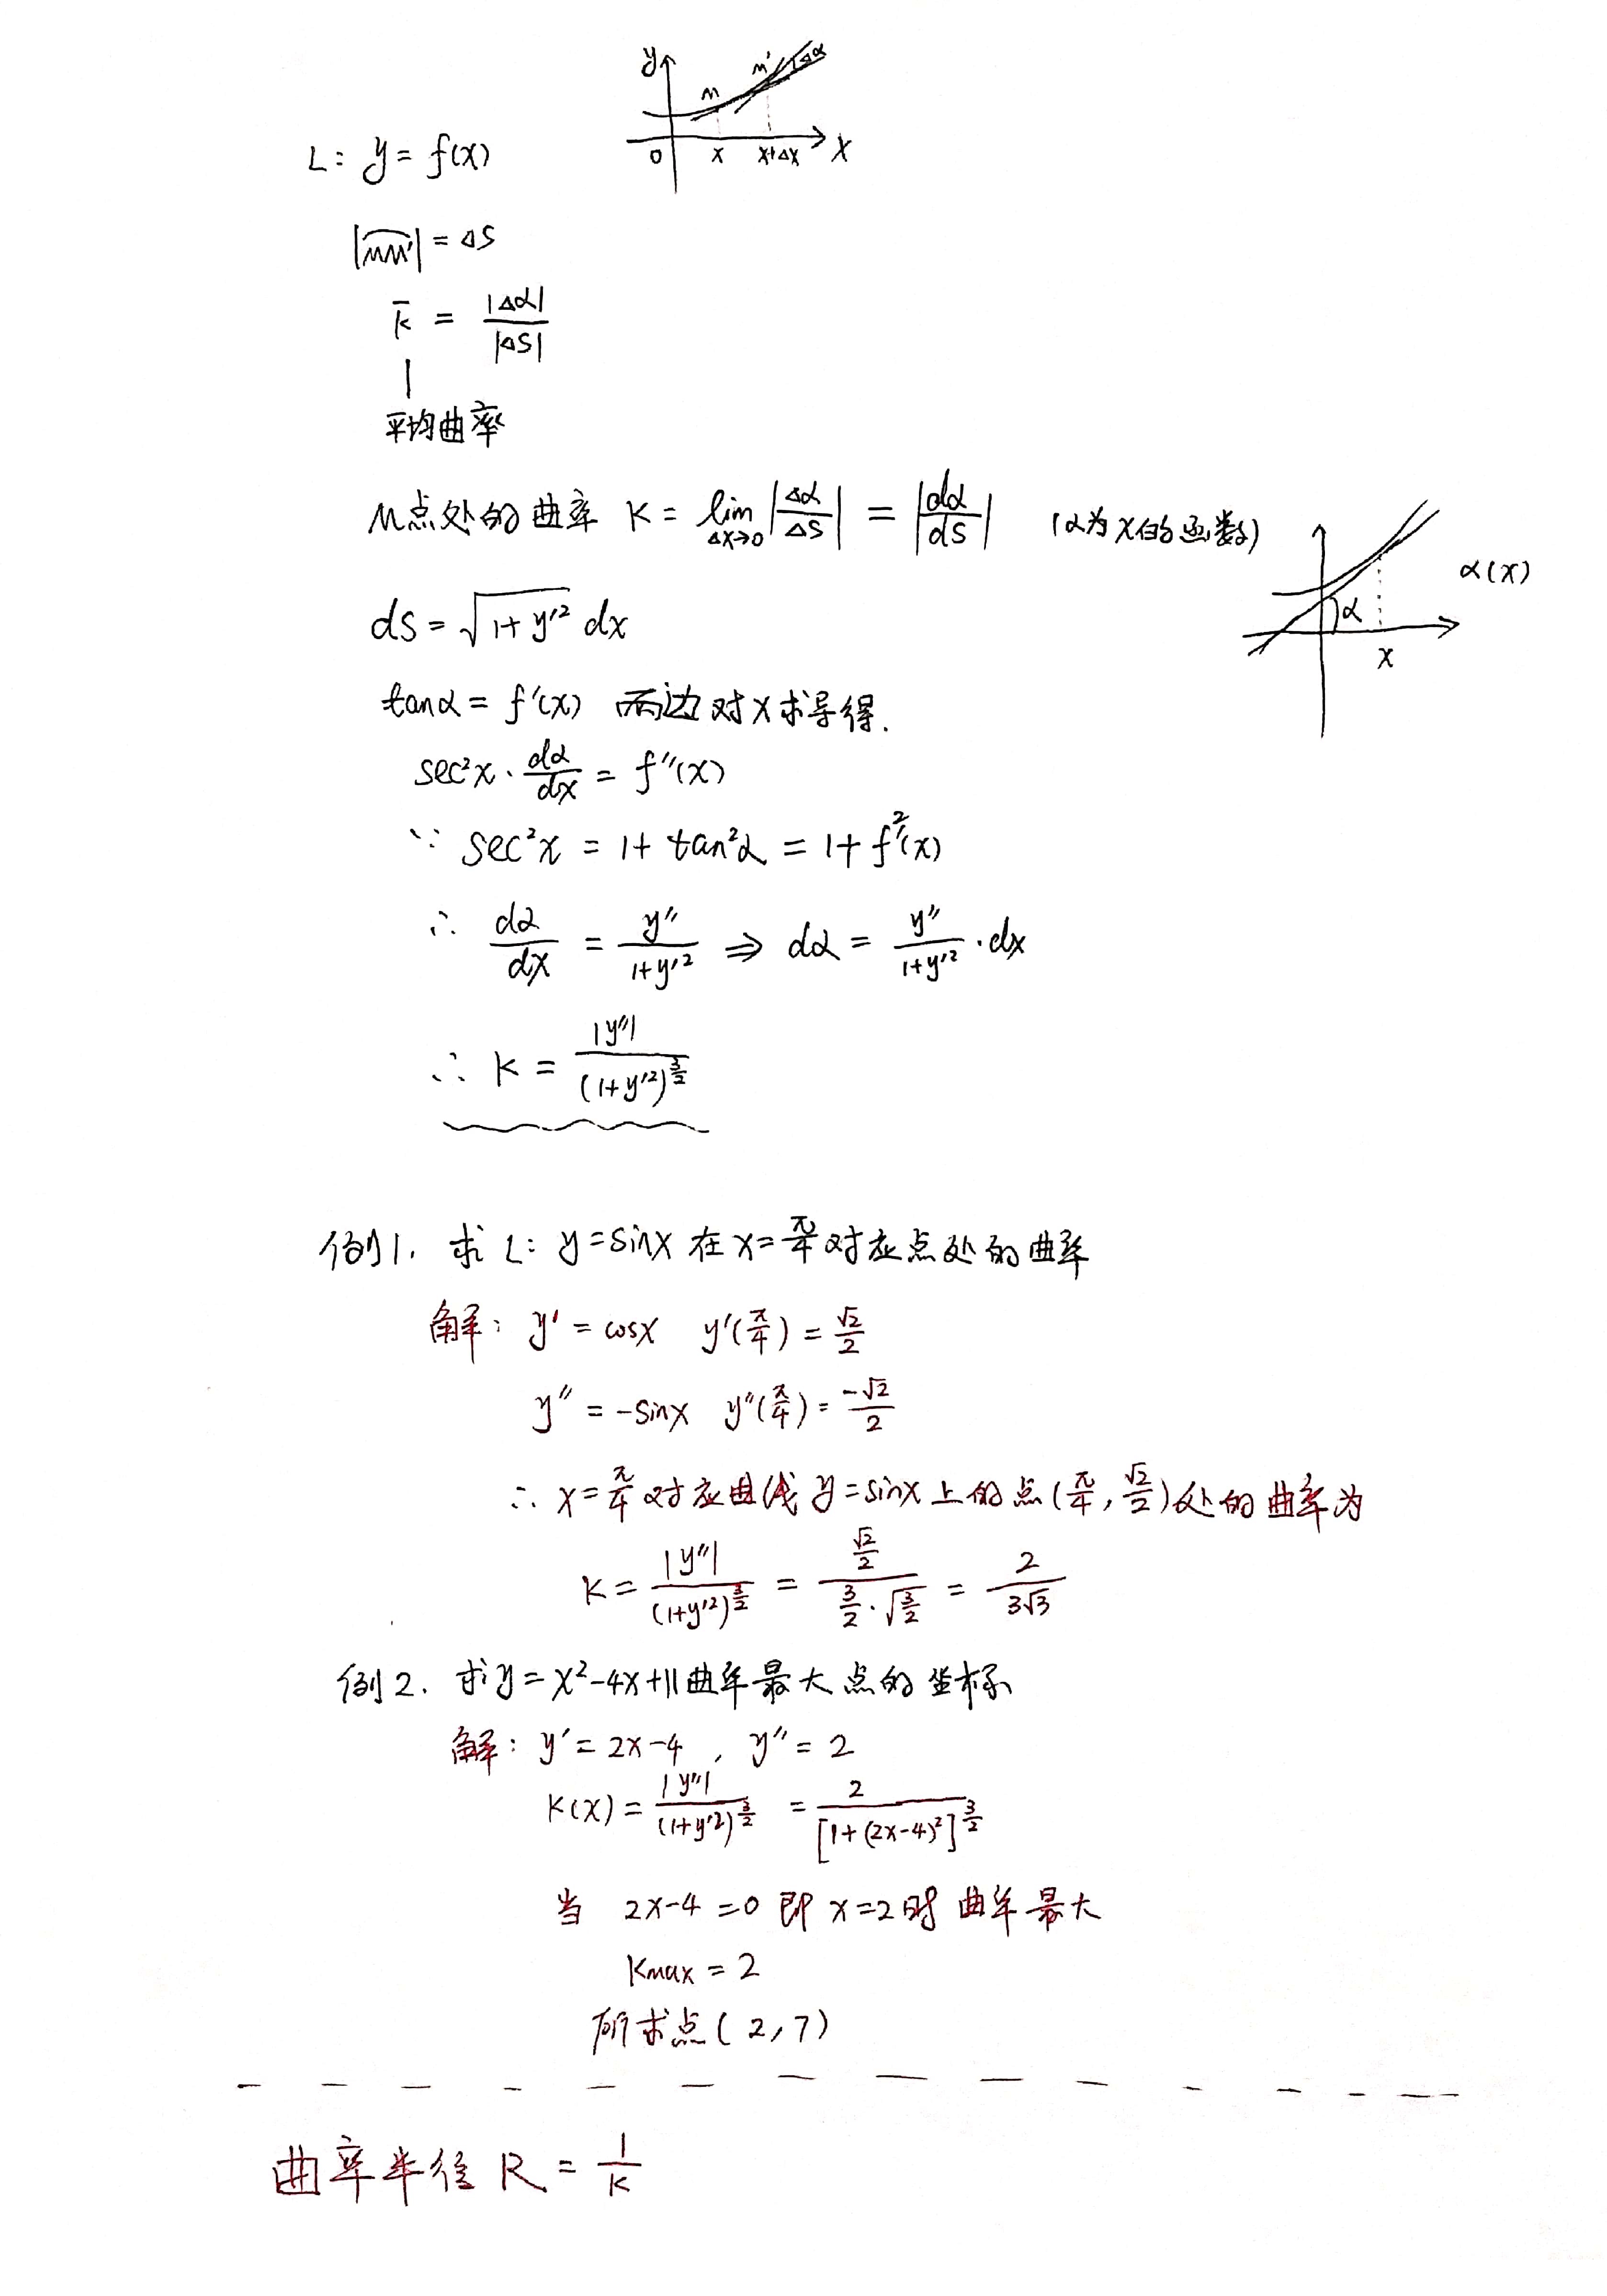 y M M' Δα
O x x+Δx X
L: y = f(x)
|M͡M'| = ΔS
k̄ = |Δα| / |ΔS|
平均曲率
M点处的曲率 K = lim_{Δx→0} |Δα/ΔS| = |dα/dS| (α为x的函数)
α(x)
α
x
dS = √(1+y'²) dx
tanα = f'(x) 两边对x求导得.
sec²x · dα/dx = f''(x)
∵ sec²x = 1 + tan²α = 1 + f'²(x)
∴ dα/dx = y''/(1+y'²) ⇒ dα = y''/(1+y'²) · dx
∴ K = |y''| / (1+y'²)^{3/2}
例1. 求 L: y = sinx 在 x = π/4 对应点处的曲率
解: y' = cosx y'(π/4) = √2/2
y'' = -sinx y''(π/4) = -√2/2
∴ x = π/4 对应曲线 y = sinx 上的点 (π/4, √2/2) 处的曲率为
K = |y''| / (1+y'²)^{3/2} = (√2/2) / (3/2 · √(3/2)) = 2/(3√3)
例2. 求 y = x²-4x+11 曲率最大点的坐标
解: y' = 2x-4 , y'' = 2
K(x) = |y''| / (1+y'²)^{3/2} = 2 / [1+(2x-4)²]^{3/2}
当 2x-4 = 0 即 x = 2 时 曲率最大
Kmax = 2
所求点 (2, 7)
曲率半径 R = 1/K